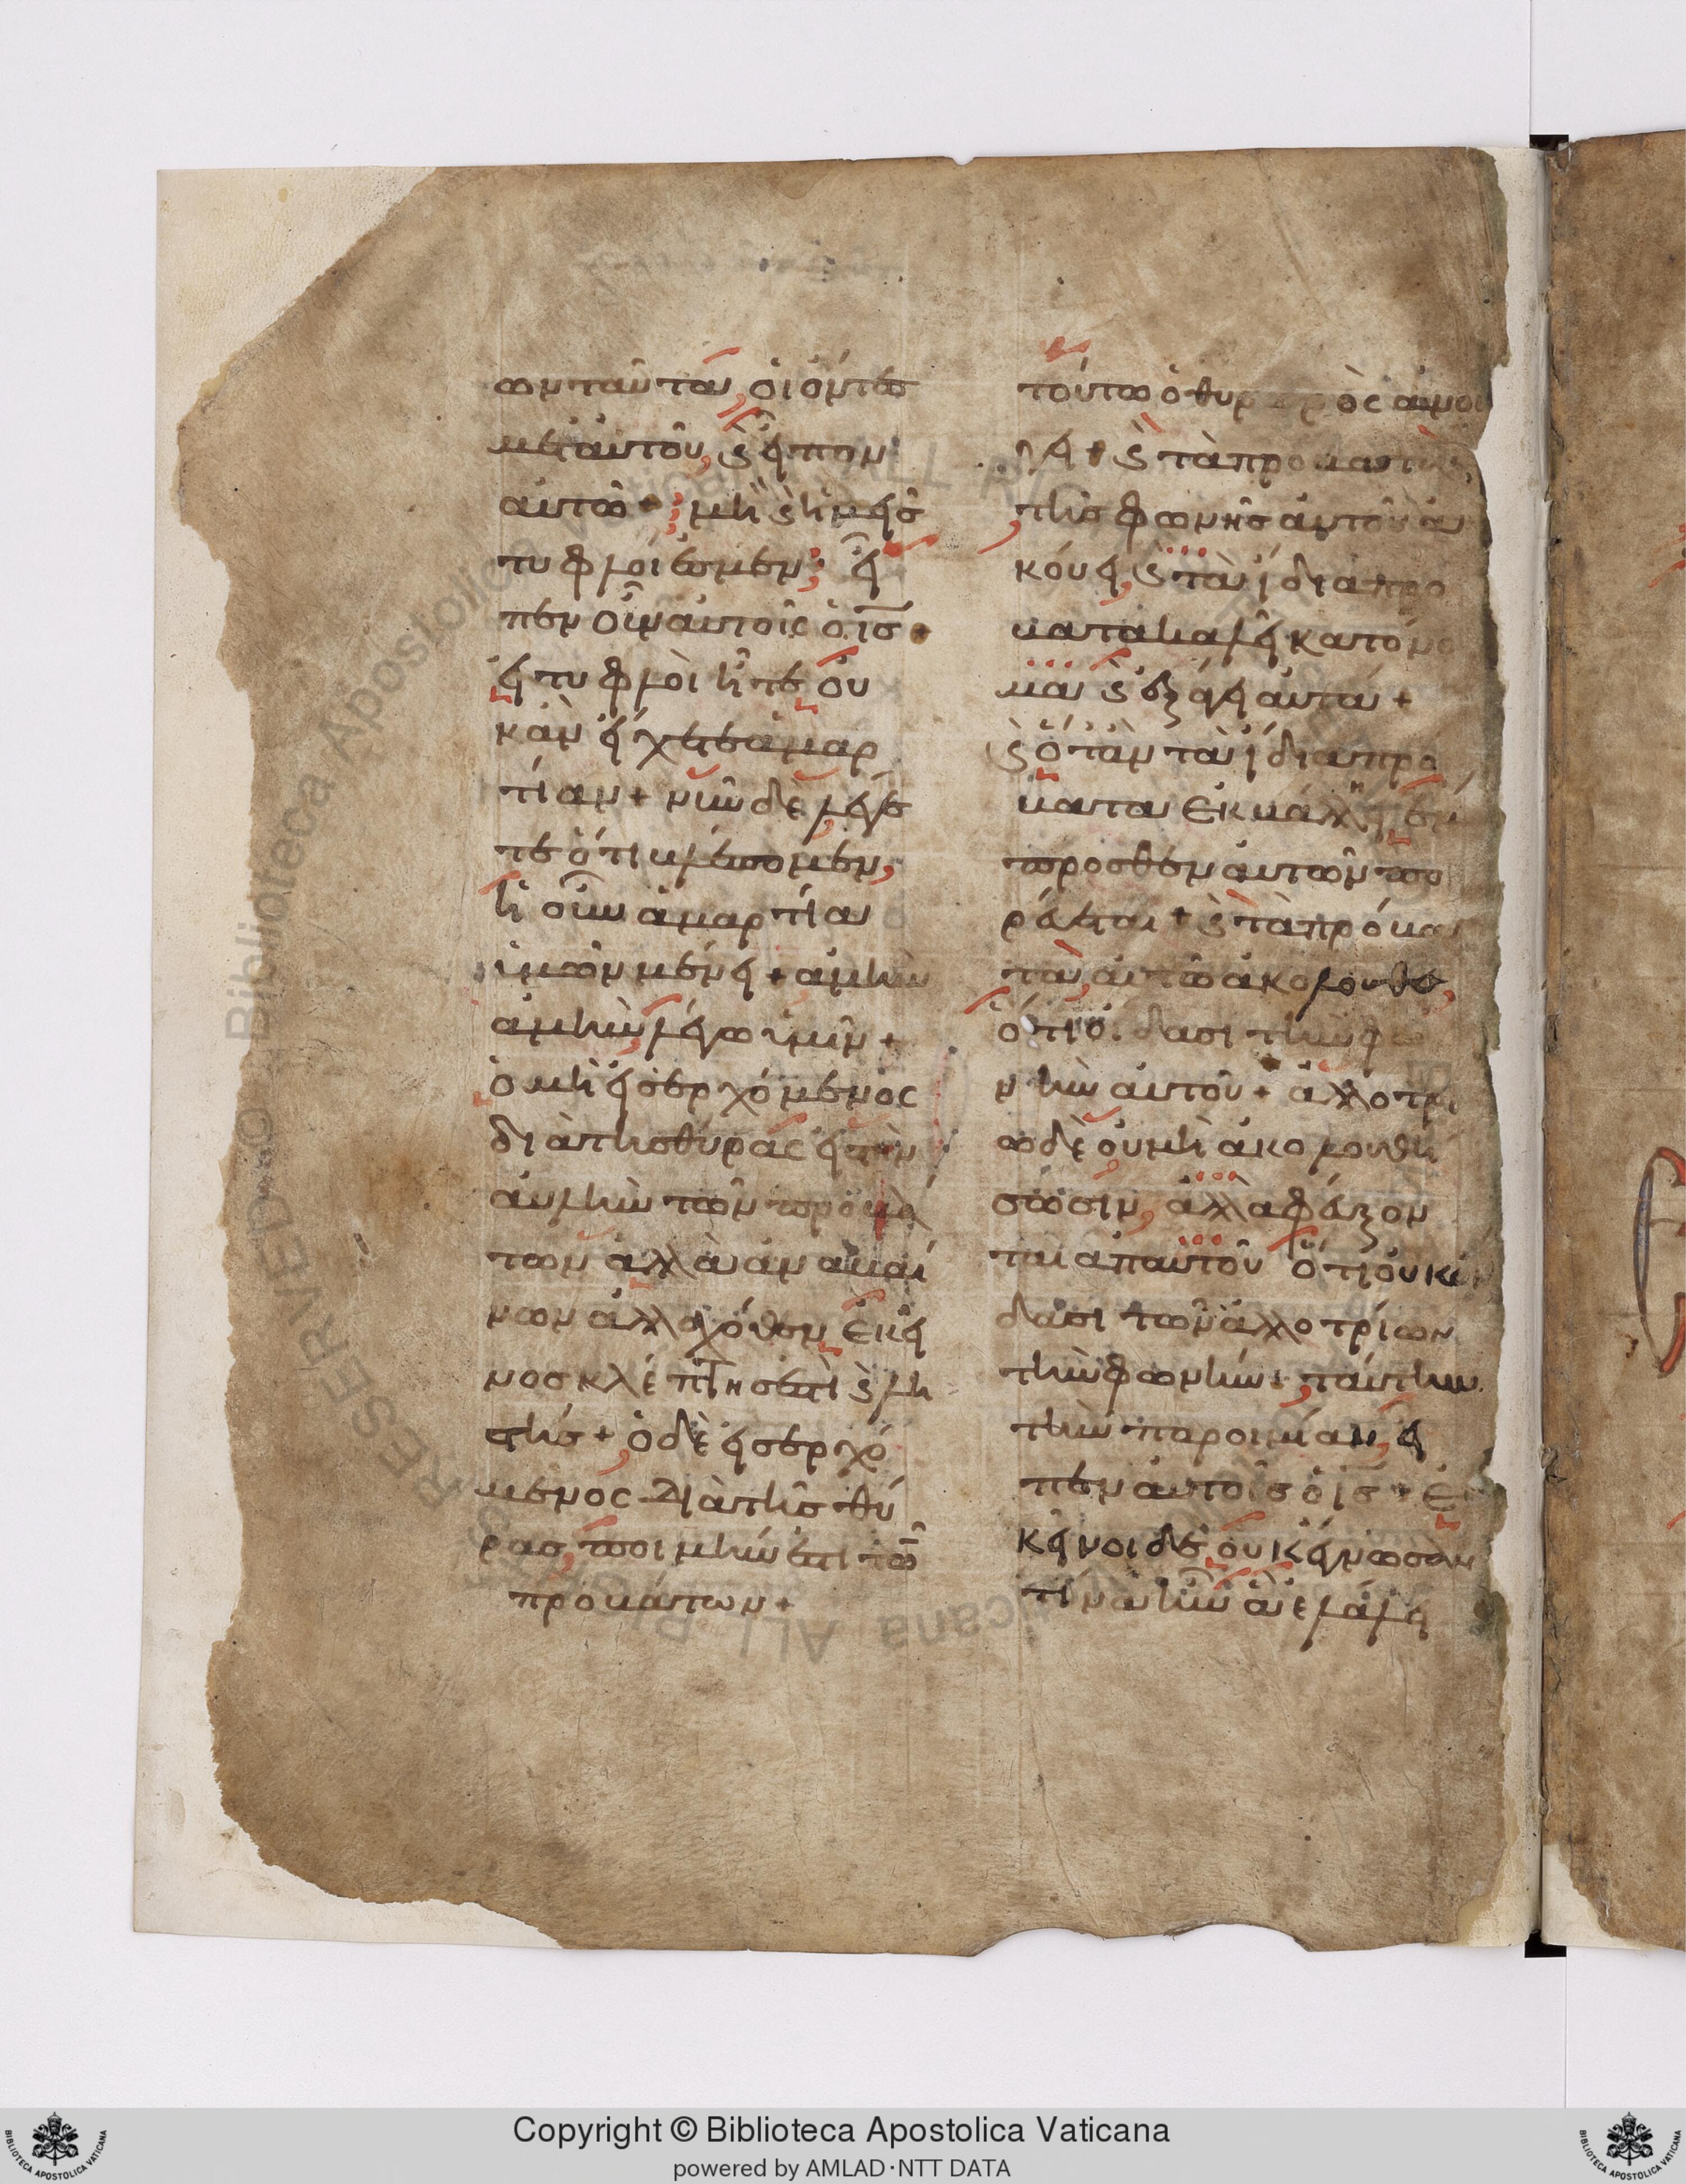 ων ταῦτα, οἱ ὄντες
μετ αὐτοῦ, ϛ εἶπον
αὐτῶ + μὴ ϛ ἡμεῖς
τυφλοί ἐσμεν; εἶ
πεν οὖν αὐτοῖς ὁ ις +
εἰ τυφλοὶ ἦτε οὐ
κἂν εἴχετε ἁμαρ
τίαν + νῦν δὲ λέγε
τε ὅτι βλέπομεν,
ἡ οὖν ἁμαρτία
ὑμῶν μένει + ἀμὴν
ἀμὴν λέγω ὑμῖν +
ὁ μὴ εἰσερχόμενος
διὰ τῆς θύρας εἰς τὴν
αὐλὴν τῶν προβά
των ἀλλὰ ἀναβαί
νων ἀλλαχόθεν ἐκεῖ
νος κλέπτης ἐστὶ ϛ λη
στής + ὁ δὲ εἰσερχό
μενος διὰ τῆς θύ
ρας, ποιμήν ἐστι τῶ
προβάτων +
τούτω ὁ θυρωρὸς ἀνοί
γει + ϛ τὰ πρόβατα
τῆς φωνῆς αὐτοῦ ἀ
κούει, ϛ τὰ ἴδια προ
βατα καλεῖ κατ ονο
μα ϛ ἐξάγει αὐτα +
ϛ ὅταν τὰ ἴδια προ
βατα ἐκβάλη ἔμ
προσθεν αὐτῶν πο
ρεύεται + ϛ τὰ πρόβα
τα αὐτῶ ἀκολουθεῖ,
ὅτι οἴδασι τὴν φω
νὴν αὐτοῦ + ἀλλοτρί
ω δὲ οὐ μὴ ἀκολουθή
σωσιν, ἀλλὰ φεύξον
ται ἀπ αὐτοῦ ὅτι οὐκ οἴ
δασι τῶν ἀλλοτρίων
τὴν φωνήν + ταύτην
τὴν παροιμίαν, εἶ
πεν αὐτοῖς ὁ ις + ἐ
κεῖνοι δὲ οὐκ ἔγνωσαν
τίνα ἦν ἃ ἐλάλει
Copyright © Biblioteca Apostolica Vaticana
powered by AMLAD·NTT DATA